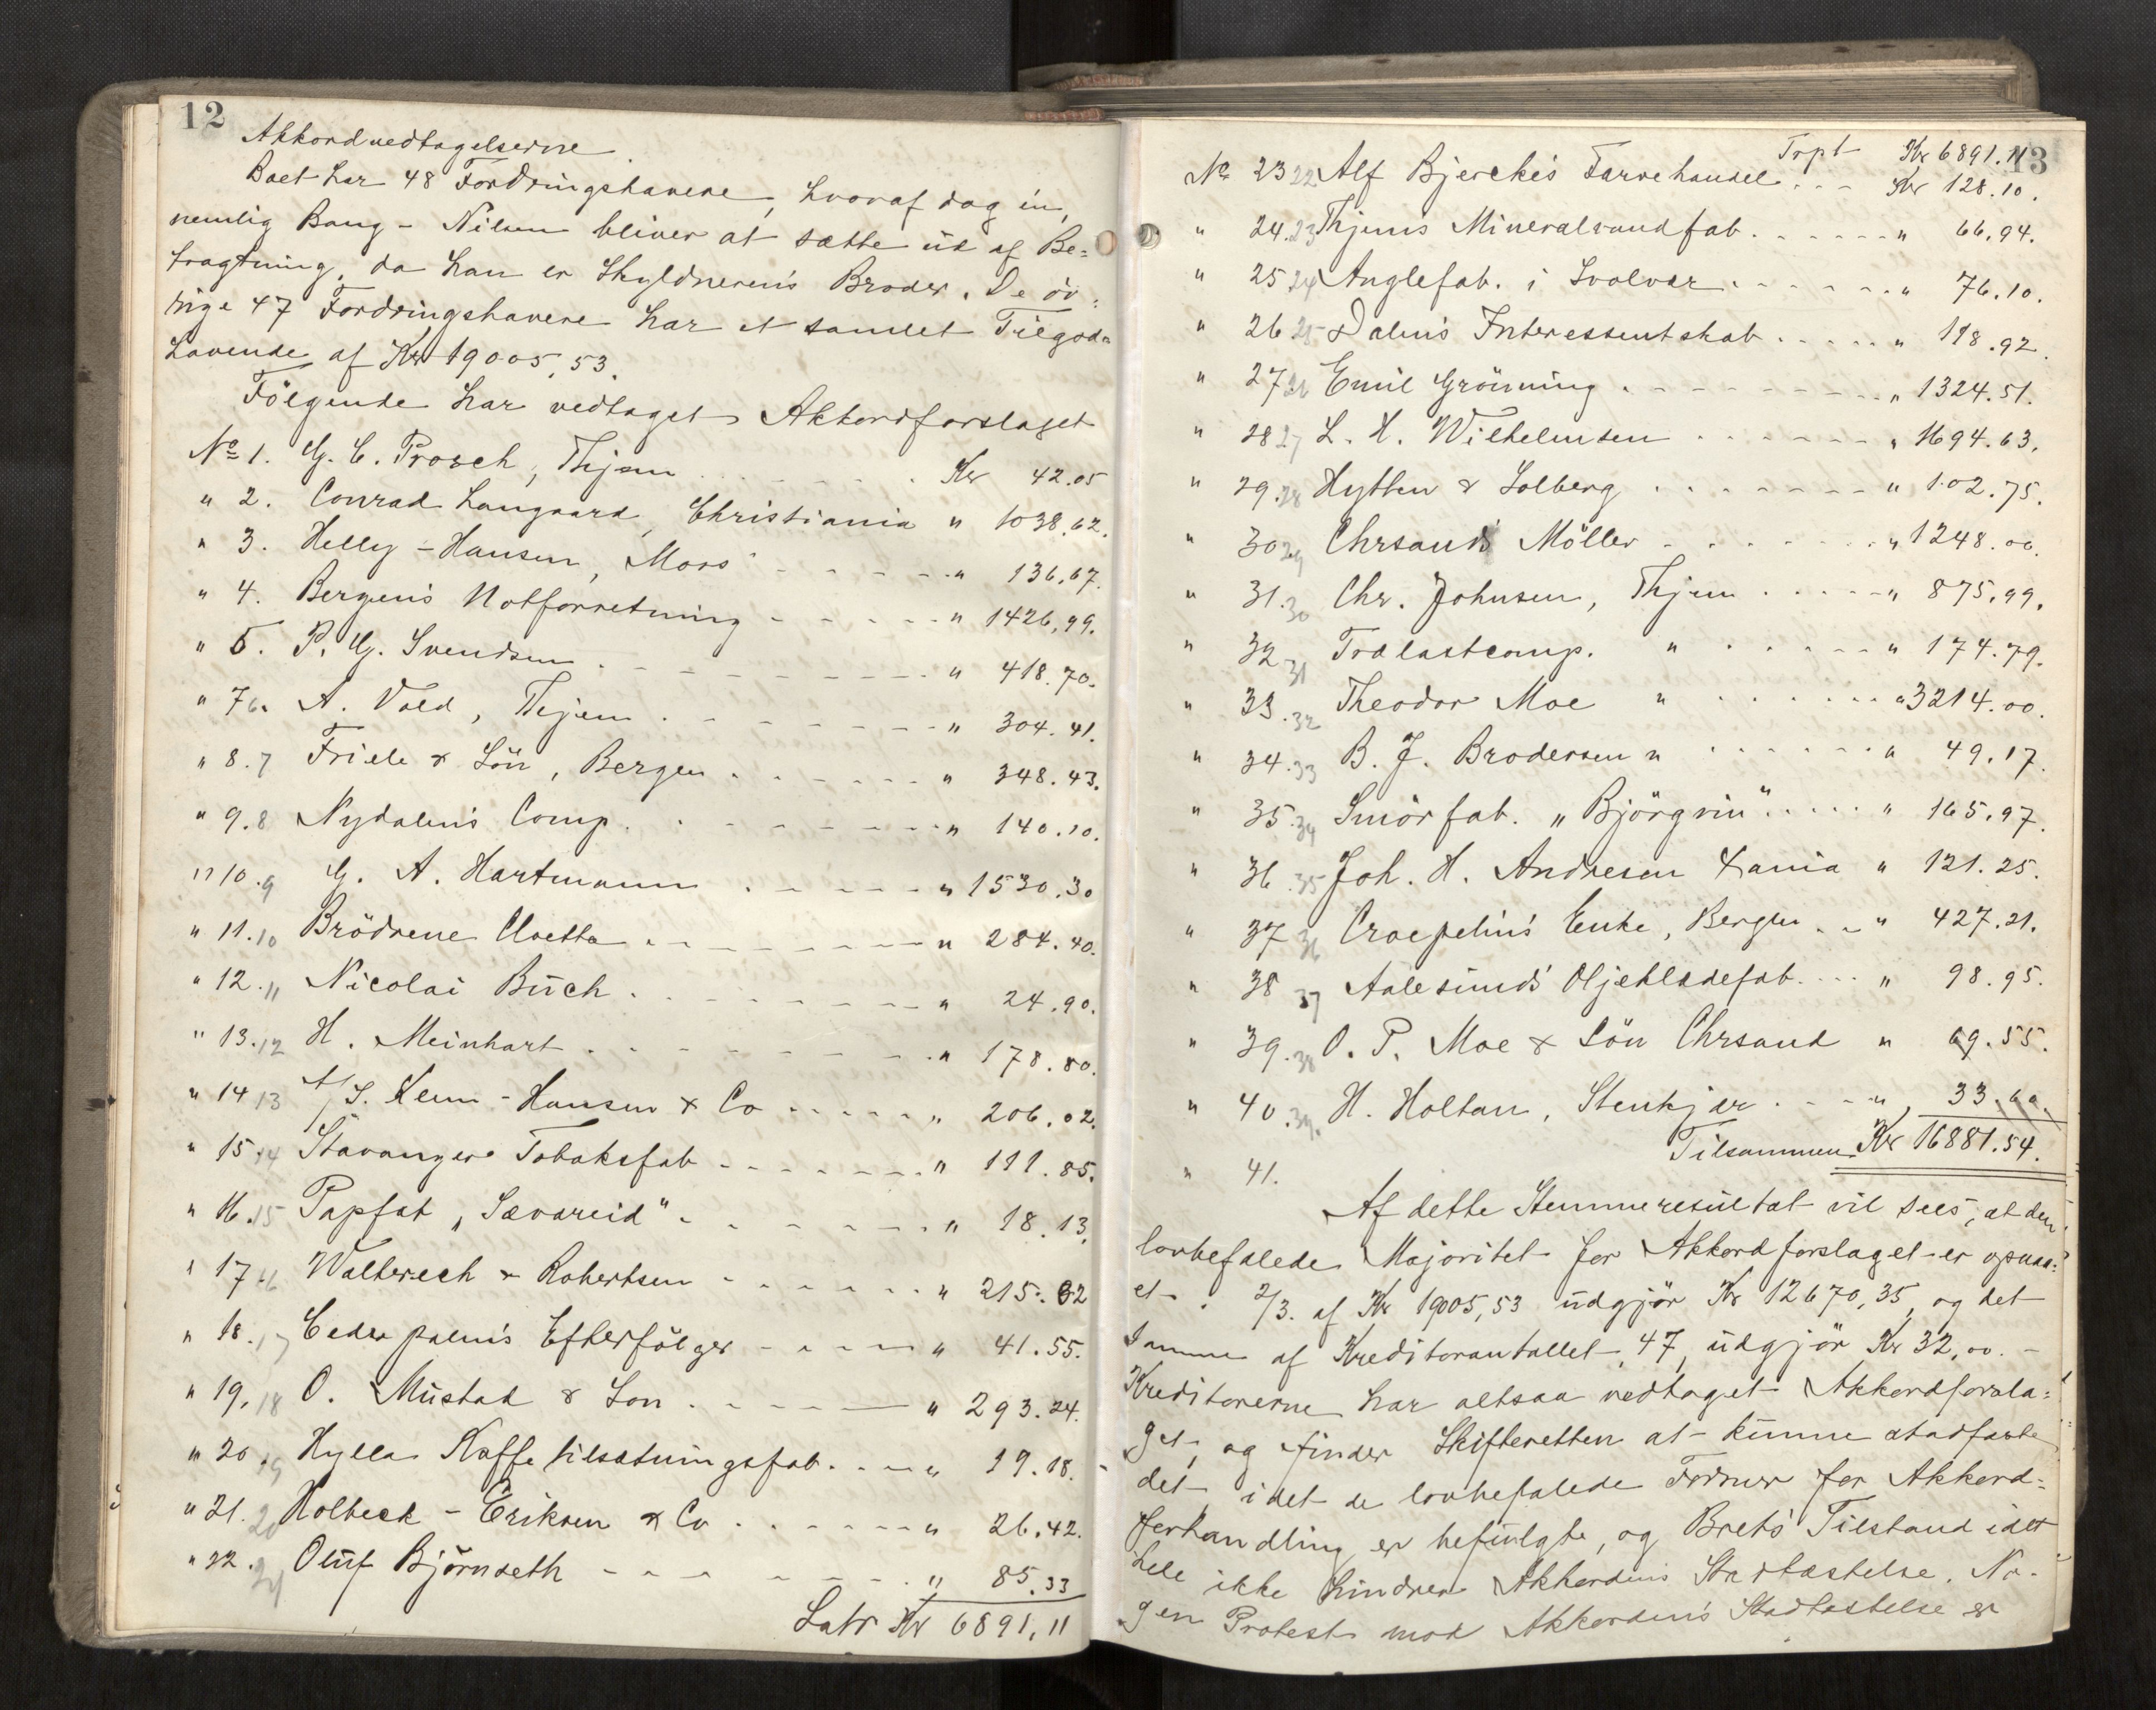 12
Akkordvedtagelserne
Boet har 48 Fordringshavere, hvoraf dog én,
nemlig Bang-Nilsen bliver at sætte ud af Be=
tragtning, da han er Skyldnerens Broder. De öv=
rige 47 Fordringshavere har et samlet Tilgode=
havende af Kr 19005,53.
Fölgende har vedtaget Akkordforslaget
No 1. G. C. Prosch, Thjem . . . . Kr 42.05
" 2. Conrad Langaard, Christiania " 1038.62.
" 3. Helly-Hansen, Moss - - - - - " 136.67.
" 4. Bergens Notforretning - - - - - " 1426,99.
" 5. P. G. Svendsen . - - - - - - - " 418.70.
" 7 6. A. Vold, Thjem . - - - - - - " 304.41.
" 8. 7 Friele & Sön, Bergen . - - - - - " 348.43.
" 9. 8 Nydalens Comp. . - - - - - - " 140.10.
" 10. 9 G. A. Hartmann . - - - - " 1530.30
" 11. 10 Brödrene Cloetta . - - - - - - " 284.40.
" 12. 11 Nicolai Buch . - - - - - - - " 24.90.
" 13. 12 H. Meinhart . - - - - - - - " 178.80.
" 14 13 A/S. Kenn-Hansen & Co - - - - - " 206.02.
" 15 14 Stavanger Tobaksfab - - - - - - " 111.85.
" 16. 15 Papfab „Sævareid" - - - - - - " 18.13.
" 17 16 Walterech & Robertsen - - - - - " 215.32
" 18. 17 Cederpalms Efterfölger - - - - " 41.55.
" 19, 18 O. Mustad & Son . - - - - " 293.24.
" 20. 19 Hylla Kaffetilsætningsfab. - - - " 19.18.
" 21. 20 Holbeck-Eriksen & Co . - - - - " 26.42.
" 22. 21 Oluf Björnseth - - - - - - - " 85.33
Latr Kr 6891,11
13
Trpt Kr 6891.11
No 23 22 Alf Bjerckes Farvehandel . . - Kr 128.10.
" 24. 23 Thjems Mineralvandfab. - - - - - " 66.94.
" 25 24 Anglefab. i Svolvær - - - - - " 76.10.
" 26 25 Dalens Interessentskab - - - - - " 118.92.
" 27 26 Emil Grönning . - - - - - - - " 1324.51.
" 28 27 L. H. Wilhelmsen - - - - - - " 1694.63.
" 29. 28 Hytten & Solberg . - - - - - - " 102.75.
" 30 29 Chrsands Möller - - - - - - " 1248.00.
" 31. 30 Chr. Johnsen, Thjem - - - - - " 875.99.
" 32 31 Trælastcomp. " - - - - - " 174.79.
" 33. 32 Theodor Moe " - - - - - - " 3214.00.
" 34. 33 B. J. Brodersen " - - - - - - " 49.17.
" 35. 34 Smörfab. „Björgvin" . . . . " 165.97.
" 36. 35 Joh. H. Andresen Xania " 121.25.
" 37 36 Croepelins Enke, Bergen . - " 427.21.
" 38 37 Aalesunds Oljeklædefab. - - " 98.95.
" 39. 38 O. P. Moe & Sön Chrsand " 69.55.
" 40. 39. H. Holtan, Stenkjær - - - " 33.60.
Tilsammen Kr 16881.54.
" 41.
Af dette Stemmeresultat vil sees, at den
lovbefalede Majoritet for Akkordforslaget er opnaa=
et. 2/3. af Kr 19005,53 udgjör Kr 12670,35, og det
samme af Kreditorantallet, 47, udgjör Kr 32,00. -
Kreditorerne har altsaa vedtaget Akkordforsla=
get, og finder Skifteretten at kunne stadfæste
det, idet de lovbefalede Former for Akkord=
forhandling er befulgte, og Boets Tilstand idet
hele ikke hindrer Akkordens Stadfæstelse. No=
gen Protest mod Akkordens Stadfæstelse er